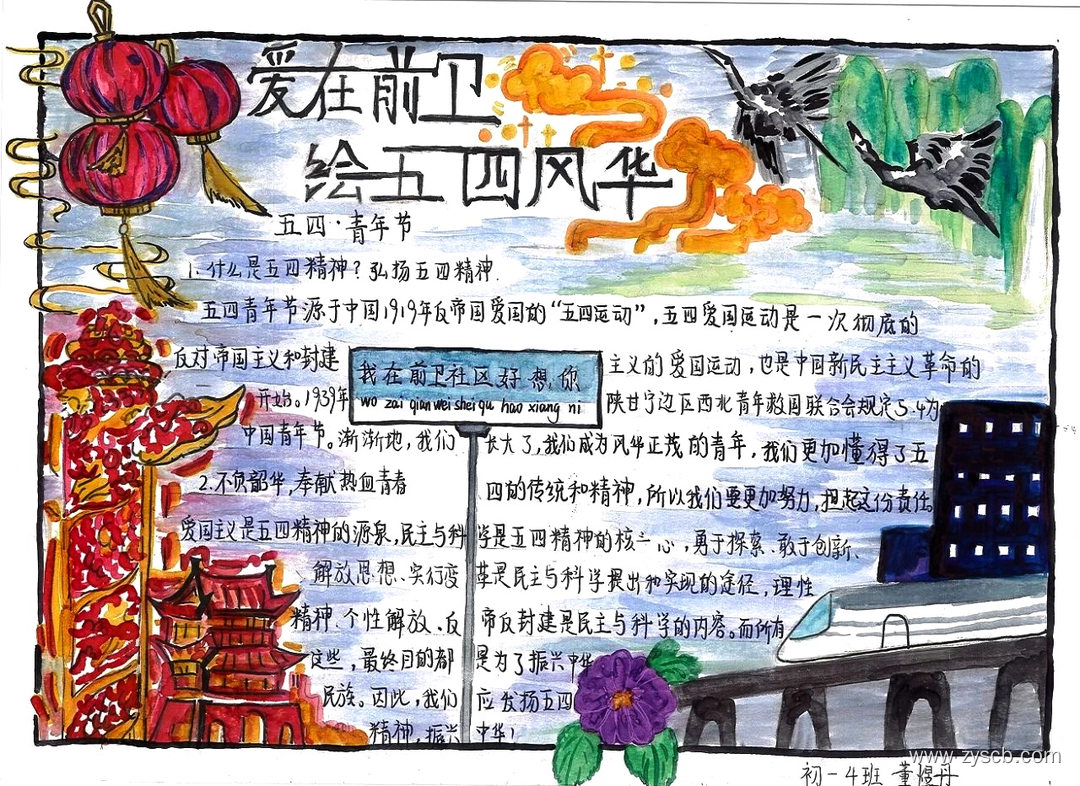 爱在前卫
绘五四风华
五四·青年节
1.什么是五四精神?弘扬五四精神.
五四青年节源于中国1919年反帝国爱国的“五四运动”,五四爱国运动是一次彻底的
反对帝国主义和封建主义的爱国运动,也是中国新民主主义革命的
我在前卫社区好想你
wo zai qianwei shequ hao xiang ni
开始。1939年陕甘宁边区西北青年救国联合会规定5.4为
中国青年节。渐渐地,我们长大了,我们成为风华正茂的青年,我们更加懂得了五
2.不负韶华,奉献热血青春
四的传统和精神,所以我们要更加努力,担起这份责任。
爱国主义是五四精神的源泉,民主与科学是五四精神的核心,勇于探索、敢于创新、
解放思想、实行变革是民主与科学提出和实现的途径,理性
精神、个性解放、反帝反封建是民主与科学的内容。而所有
这些,最终目的都是为了振兴中华
民族。因此,我们应发扬五四
精神,振兴中华!
www.zyscb.com
初一4班 董煜丹